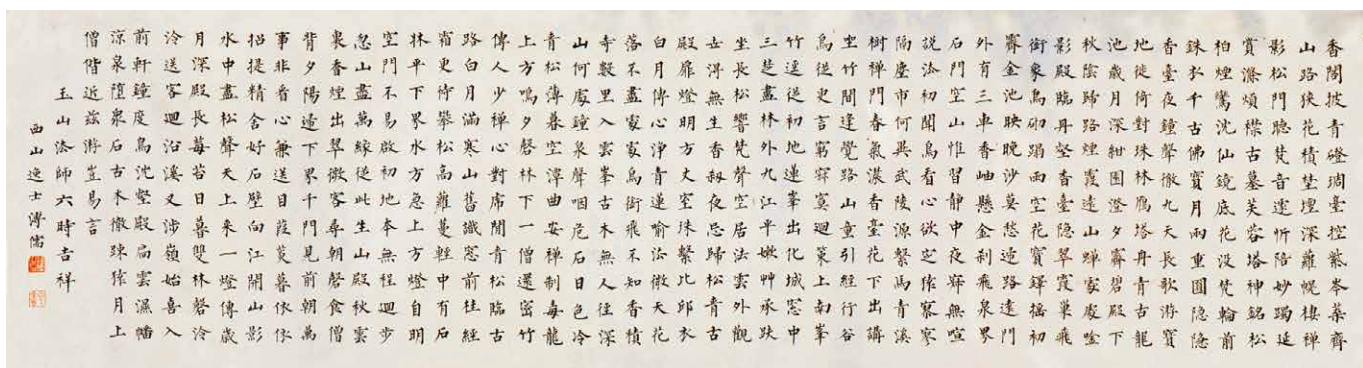 香閣披青磴琱臺控紫岑葉齊
山路狹花積埜壇深蘿幌棲禪
影松門聽梵音遽忻陪妙躅延
賞滌煩襟古墓芙蓉塔神銘松
柏煙鸞沈仙鏡底花沒梵輪前
銖衣千古佛寶月兩重圓隱隱
香臺夜鐘聲徹九天長歌游寶
地徙倚對珠林鴈塔丹青古龍
池歲月深紺園澄夕霽碧殿下
秋陰歸路煙霞遠山蟬處處唫
影殿臨丹壑香臺隱翠霞巢飛
銜象鳥砌蹋雨空花寶鐸搖初
霽金池映晚沙莫愁還路遠門
外有三車香岫懸金刹飛泉界
石門空山惟習靜中夜寂無喧
說法初聞鳥看心欲定猿寥寥
隔塵市何異武陵源繫馬青溪
樹禪門春氣濃香臺花下出講
坐竹間逢覺路山童引經行谷
鳥從更言窮寂寞迴策上南峯
竹逕從初地蓮峯出化城窓中
三楚盡林外九江平嫩艸承趺
坐長松響梵聲空居法雲外觀
世得無生香刹夜忘歸松青古
殿扉燈明方丈室珠繫比邱衣
白月傳心淨青蓮喻法微天花
落不盡處處鳥銜飛不知香積
寺數里入雲峯古木無人徑深
山何處鐘泉聲咽危石日色冷
青松薄暮空潭曲安禪制毒龍
上方鳴夕磬林下一僧還密竹
傳人少禪心對虎閒青松臨古
路白月滿寒山舊識窓前桂經
霜更待攀松高蘿蔓輕中有石
林平下界水方急上方燈自明
空門不易啟初地本無程迴步
忽山盡萬緣從此生山殿秋雲
裏香煙出翠微客尋朝磬食僧
背夕陽歸下界千門見前朝萬
事非看心兼送目葭菼暮依依
招提精舍好石壁向江開山影
水中盡松聲天上來一燈傳歲
月深殿長莓苔日暮雙林磬泠
泠送客迴沿溪又涉嶺始喜入
前軒鐘度鳥沈壑殿扃雲濕幡
涼泉墮泉石古木徹疎猿月上
僧階近茲游豈易言
玉山法師六時吉祥
西山逸士溥儒